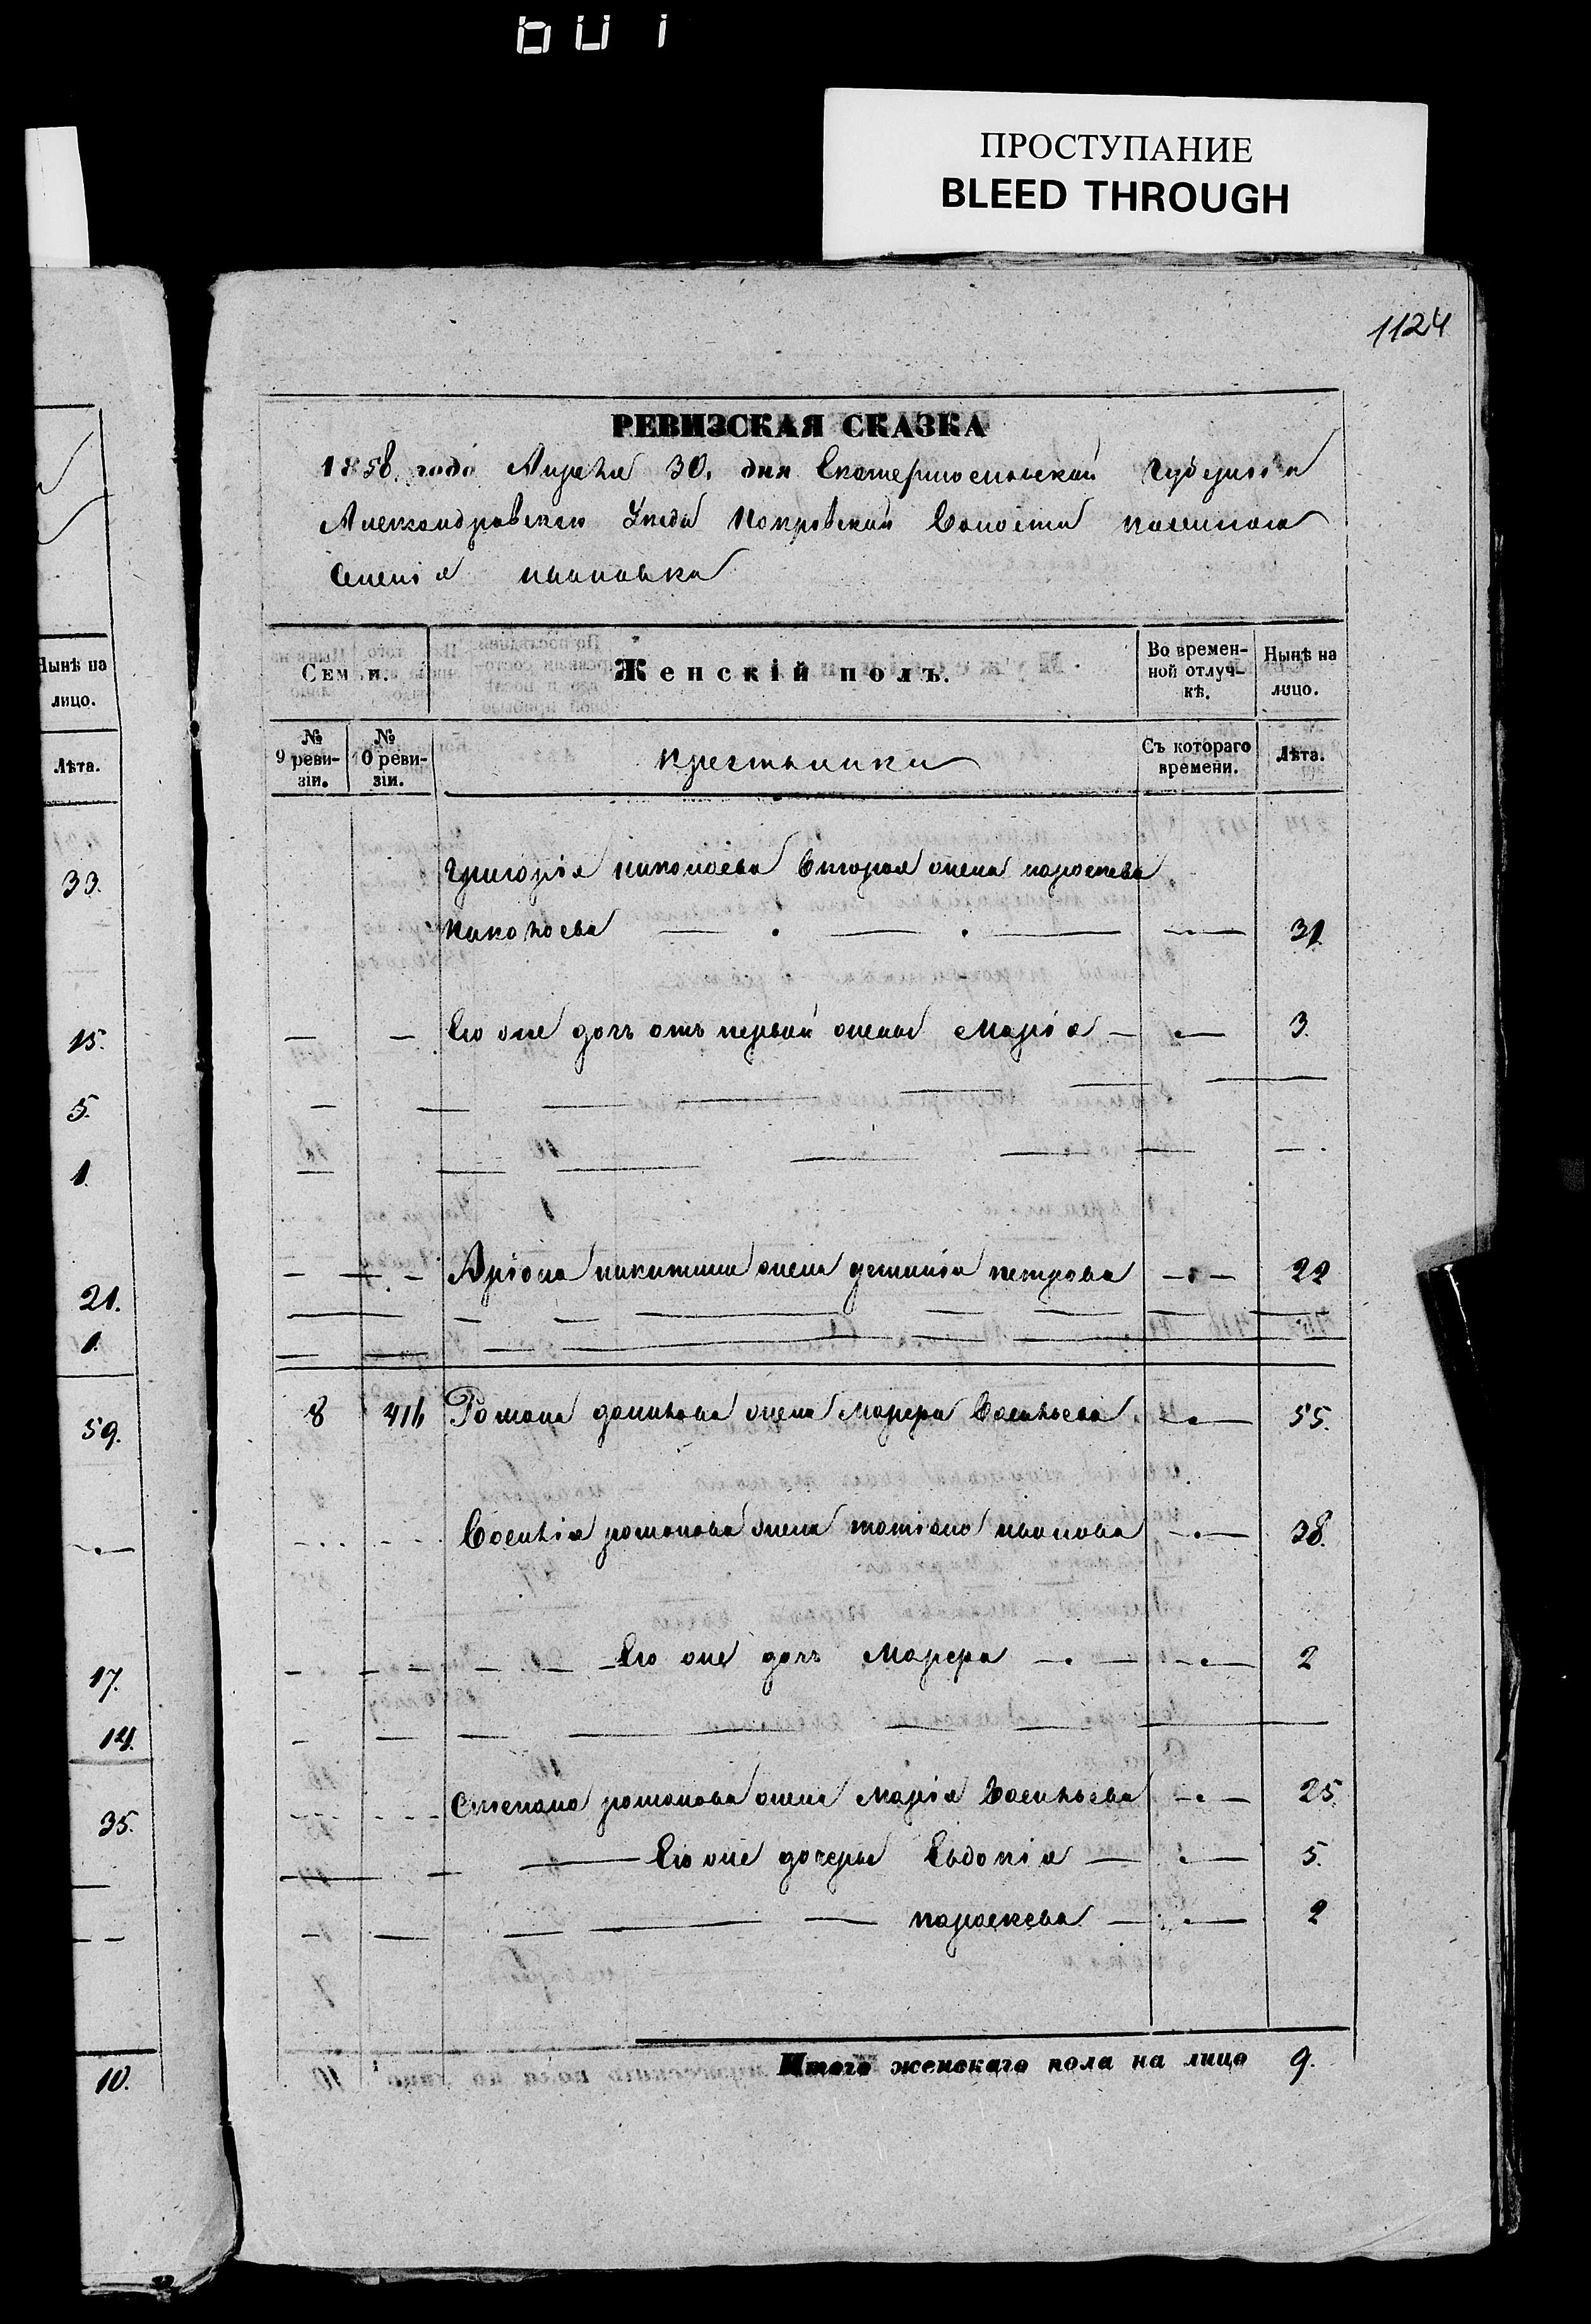 ПРОСТУПАНИЕ
BLEED THROUGH
1124
РЕВИЗСКАЯ СКАЗКА
1858. года Апреля 30. дня Екатеринославской Губерніи
Александровскаго Уезда Покровской Волости казеннаго
Селенія ивановка
Семьи. Женскій полъ. Во времен-ной отлуч-кѣ. Нынѣ на лицо.
№ 9 реви-зіи. № 0 реви-зіи. крестьянки Съ котораго времени. Лѣта.
Григорія николаева Вторая жена параскева
Николаева 31
Его же дочь отъ первой жены Марія 3.
никитина жена петрова 22
8 416 Романа данилова жена Марфа Васильева 55.
Василія романова жена татіана иванова 38.
Его же дочь Марфа 2
Степана романова жена Марія Васильева 25
Его же дочеры Евдокія 5.
параскева 2
Итого женскаго пола на лицо 9.
Нынѣ на
лицо.
Лѣта.
33.
15.
5.
1.
21.
1.
59.
17.
14.
35.
10.